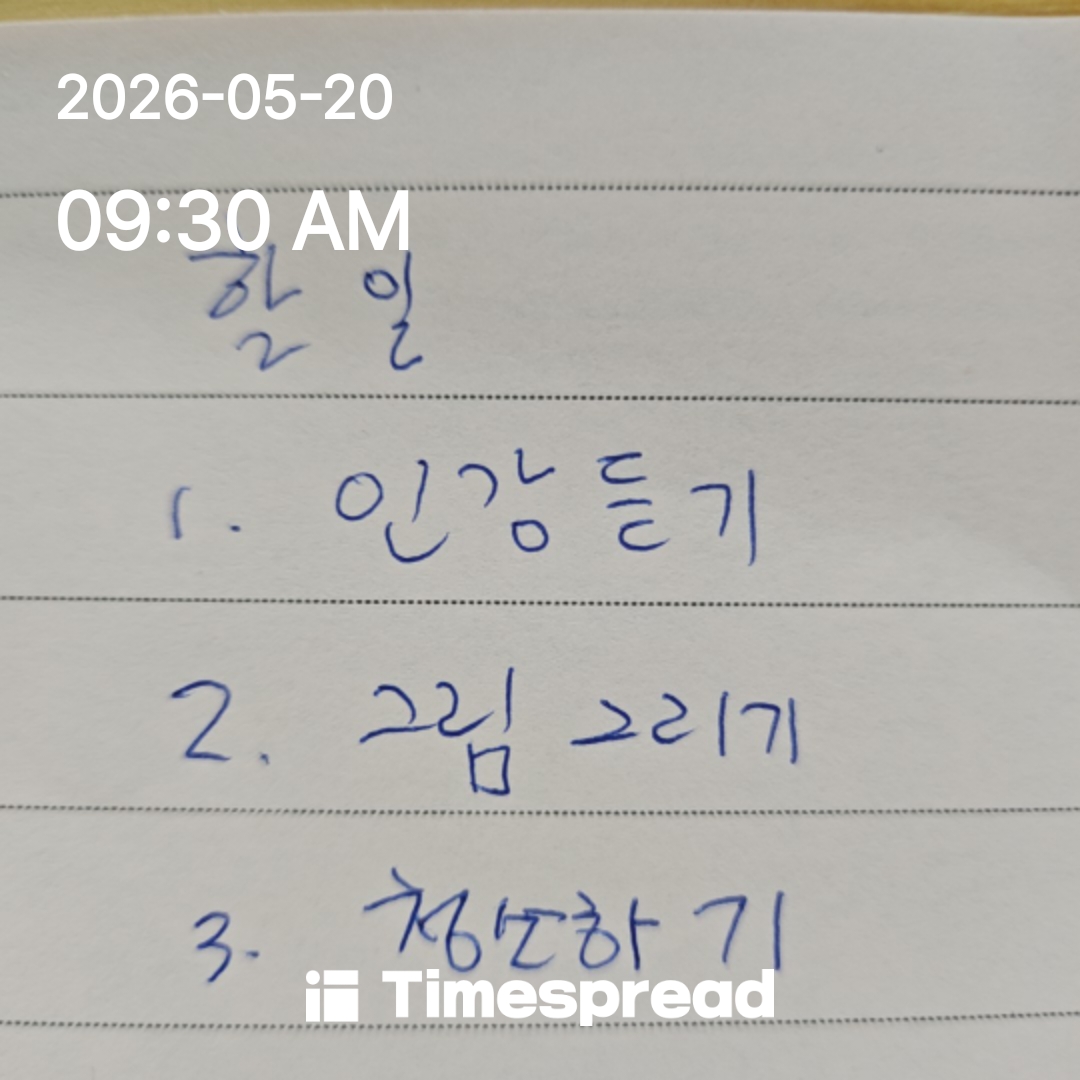 2026-05-20
09:30 AM
할 일
1. 인강 듣기
2. 그림 그리기
3. 청소하기
Timespread